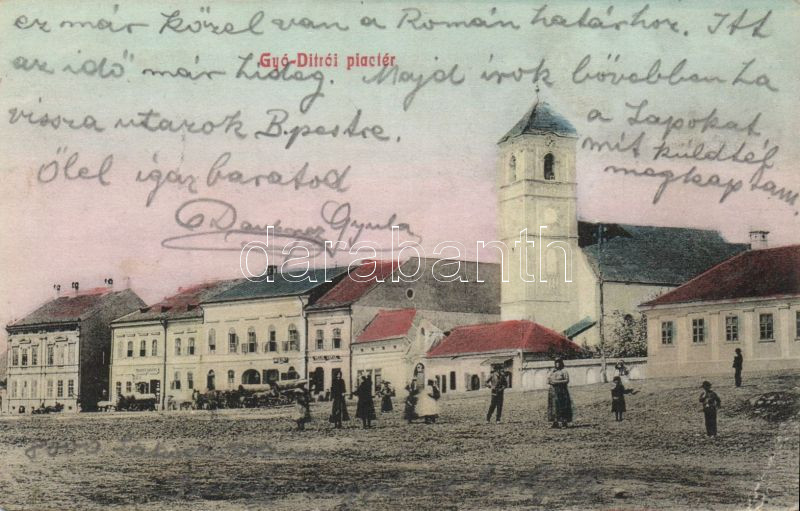 ez már közel van a Román határhoz. Itt
Gyó-Ditrói piactér
az idő már hideg. Majd írok bővebben ha
vissza utazok B.pestre.
a Lapokat
mit küldtél
megkaptam.
Ölel igaz barátod
Gyula
darabanth